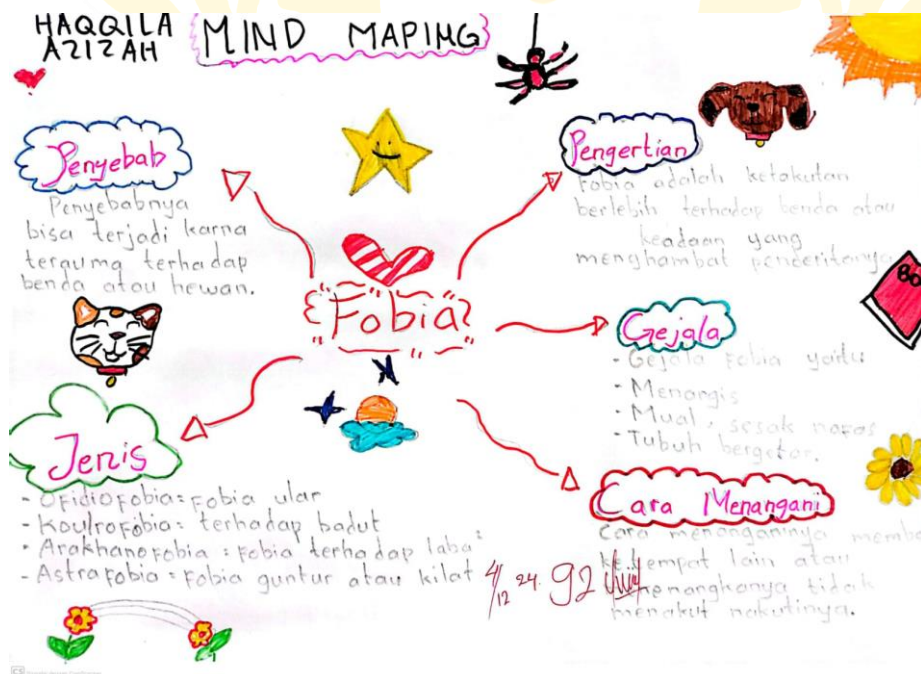 HAQQILA
AZIZAH
MIND MAPING
Penyebab
Penyebabnya
bisa terjadi karna
terauma terhadap
benda atau hewan.
Pengertian
Fobia adalah ketakutan
berlebih terhadap benda atau
keadaan yang
menghambat penderitanya
Fobia
Bo
Gejala
- Gejala fobia yaitu
- Menangis
- Mual, sesak nafas
- Tubuh bergetar.
Jenis
- Ofidiofobia = fobia ular
- Koulrofobia = terhadap badut
- Arakhanofobia : fobia terhadap laba²
- Astrafobia = fobia guntur atau kilat
Cara Menangani
Cara menanganinya
ke tempat lain atau
tidak
menakut nakutinya.
4/12 24.
92
CS